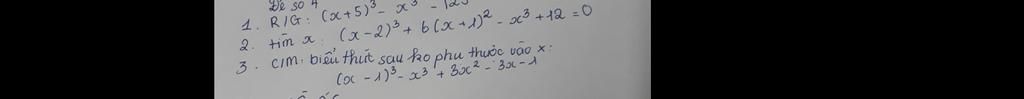 Đề số 4
1. R/G: (x+5)³ - x³ - 125
2. tìm x: (x-2)³ + 6(x+1)² - x³ + 12 = 0
3. C/M: biểu thức sau ko phụ thuộc vào x:
(x - 1)³ - x³ + 3x² - 3x - 1